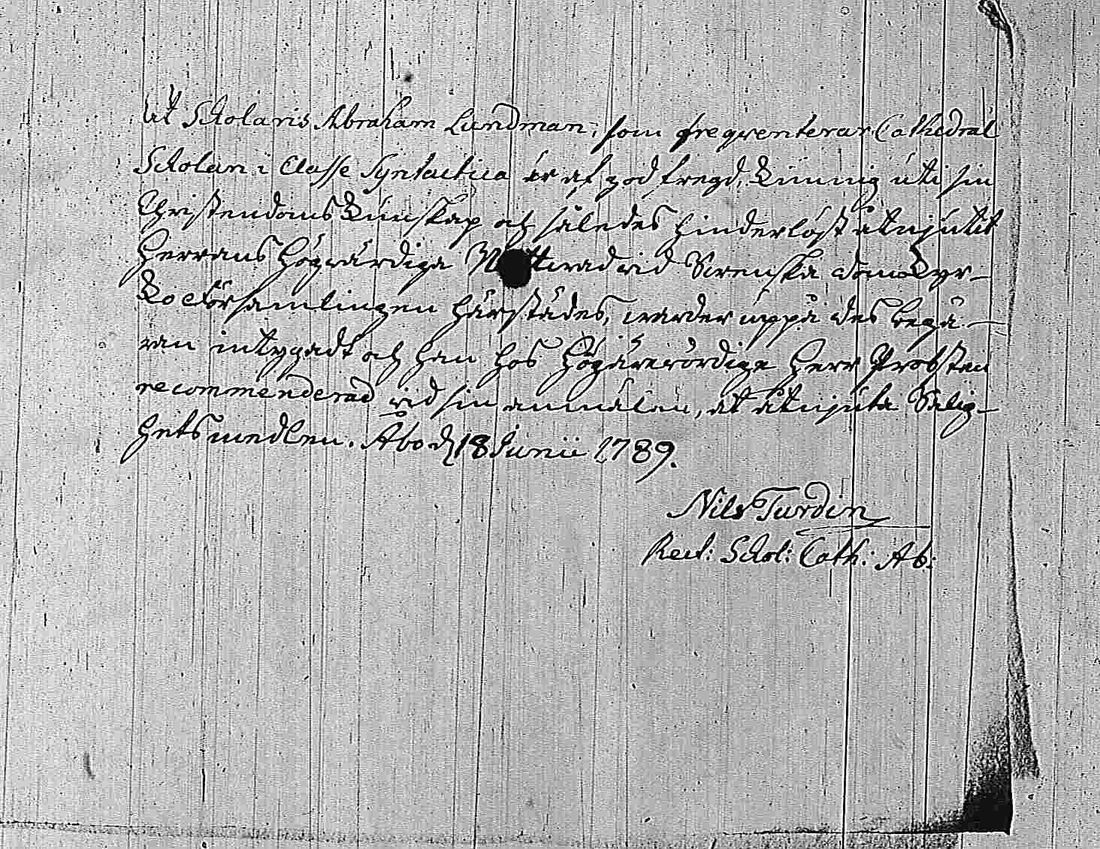 At Scholaris Abraham Lundman, som freqventerar Cathedral
Scholan i Classe Syntactica är af god fregd, kunnig uti sin
Christendoms Kunskap och således hinderlöst åtnjutit
Herrans Högvärdiga Nattward vid Svenska Domkyr-
ko Församlingen härstädes, warder uppå des begä-
ran intygadt och han hos Högärevördige Herr Probsten
recommenderad vid sin anmälan, at åtnjuta Salig-
hets medlen. Åbo d 18 Junii 1789.
Nils Turdin
Rect: Schol: Cath: Ab: